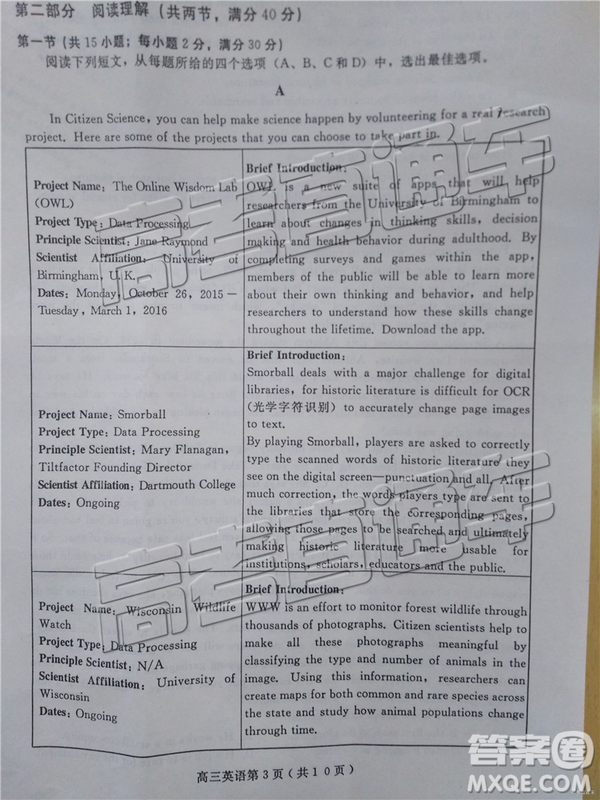 第二部分 阅读理解（共两节，满分40分）
第一节（共15小题；每小题2分，满分30分）
阅读下列短文，从每题所给的四个选项（A、B、C和D）中，选出最佳选项。
A
In Citizen Science, you can help make science happen by volunteering for a real research
project. Here are some of the projects that you can choose to take part in.
Project Name: The Online Wisdom Lab
(OWL)
Project Type: Data Processing
Principle Scientist: Jane Raymond
Scientist Affiliation: University of
Birmingham, U. K.
Dates: Monday, October 26, 2015—
Tuesday, March 1, 2016
Brief Introduction:
OWL is a new suite of apps that will help
researchers from the University of Birmingham to
learn about changes in thinking skills, decision
making and health behavior during adulthood. By
completing surveys and games within the app,
members of the public will be able to learn more
about their own thinking and behavior, and help
researchers to understand how these skills change
throughout the lifetime. Download the app.
Project Name: Smorball
Project Type: Data Processing
Principle Scientist: Mary Flanagan,
Tiltfactor Founding Director
Scientist Affiliation: Dartmouth College
Dates: Ongoing
Brief Introduction:
Smorball deals with a major challenge for digital
libraries, for historic literature is difficult for OCR
（光学字符识别）to accurately change page images
to text.
By playing Smorball, players are asked to correctly
type the scanned words of historic literature they
see on the digital screen—punctuation and all. After
much correction, the words players type are sent to
the libraries that store the corresponding pages,
allowing those pages to be searched and ultimately
making historic literature more usable for
institutions, scholars, educators and the public.
Project Name: Wisconsin Wildlife
Watch
Project Type: Data Processing
Principle Scientist: N/A
Scientist Affiliation: University of
Wisconsin
Dates: Ongoing
Brief Introduction:
WWW is an effort to monitor forest wildlife through
thousands of photographs. Citizen scientists help to
make all these photographs meaningful by
classifying the type and number of animals in the
image. Using this information, researchers can
create maps for both common and rare species across
the state and study how animal populations change
through time.
高三英语第3页（共10页）
高考直通车
高考直通车
答案圈
MXQE.COM